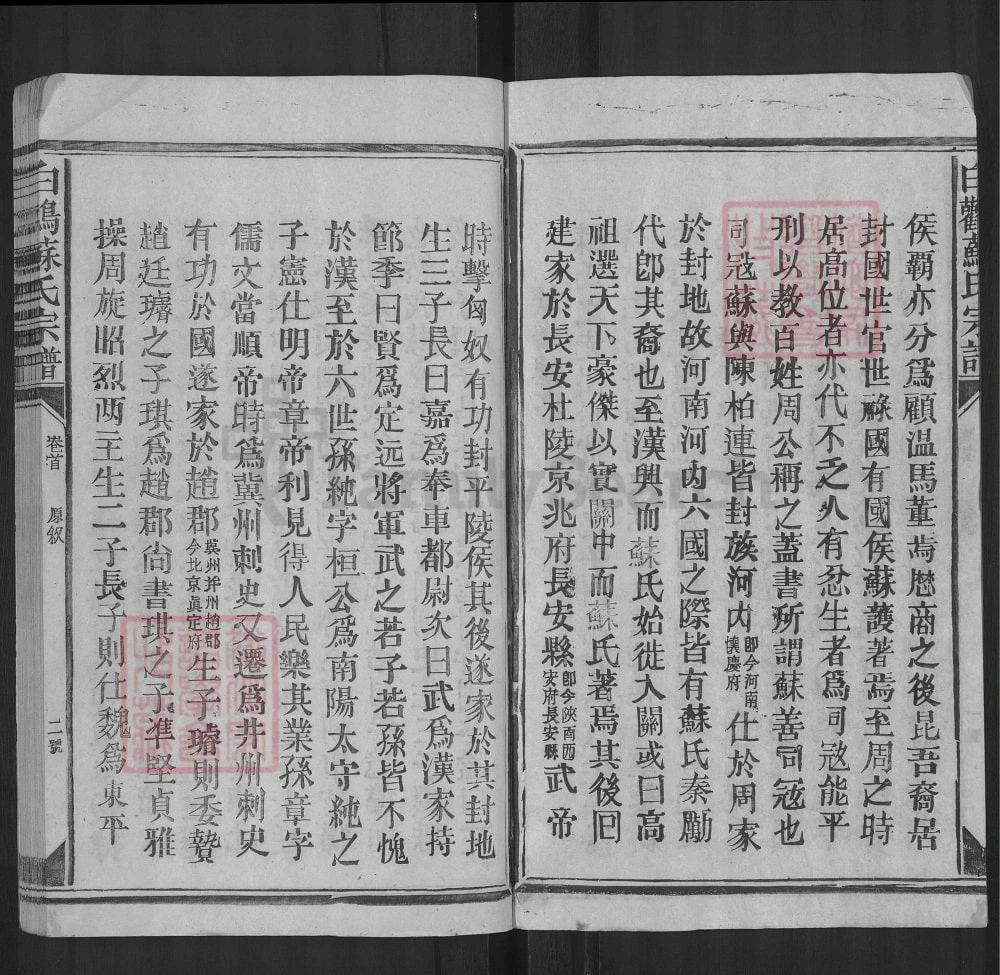 侯覇亦分爲顧温馬董焉歴商之後昆吾裔居
封國世官世祿國有國侯蘇護著焉至周之時
居高位者亦代不乏人有忿生者爲司寇能平
刑以教百姓周公稱之蓋書所謂蘇善司寇也
司寇蘇與陳柏連皆封族河内卽今河南懷慶府仕於周家
於封地故河南河内六國之際皆有蘇氏秦勵
代卽其裔也至漢興而蘇氏始徙入關或曰高
祖選天下豪傑以實關中而蘇氏著焉其後囘
建家於長安杜陵京兆府長安縣卽今陝西西安府長安縣武帝
時擊匈奴有功封平陵侯其後遂家於其封地
生三子長曰嘉爲奉車都尉次曰武爲漢家持
節季曰賢爲定远將軍武之若子若孫皆不愧
於漢至於六世孫純字桓公爲南陽太守純之
子憲仕明帝章帝利見得人民樂其業孫章字
儒文當順帝時爲冀州刺史又遷爲并州刺史
有功於國遂家於趙郡冀州并州趙郡今北京眞定府生子璿則委贄
趙廷璿之子琪爲趙郡尙書琪之子準堅貞雅
操周旋昭烈两主生二子長子則仕魏爲東平
白鶴蘇氏宗譜
卷首
原叙
二號